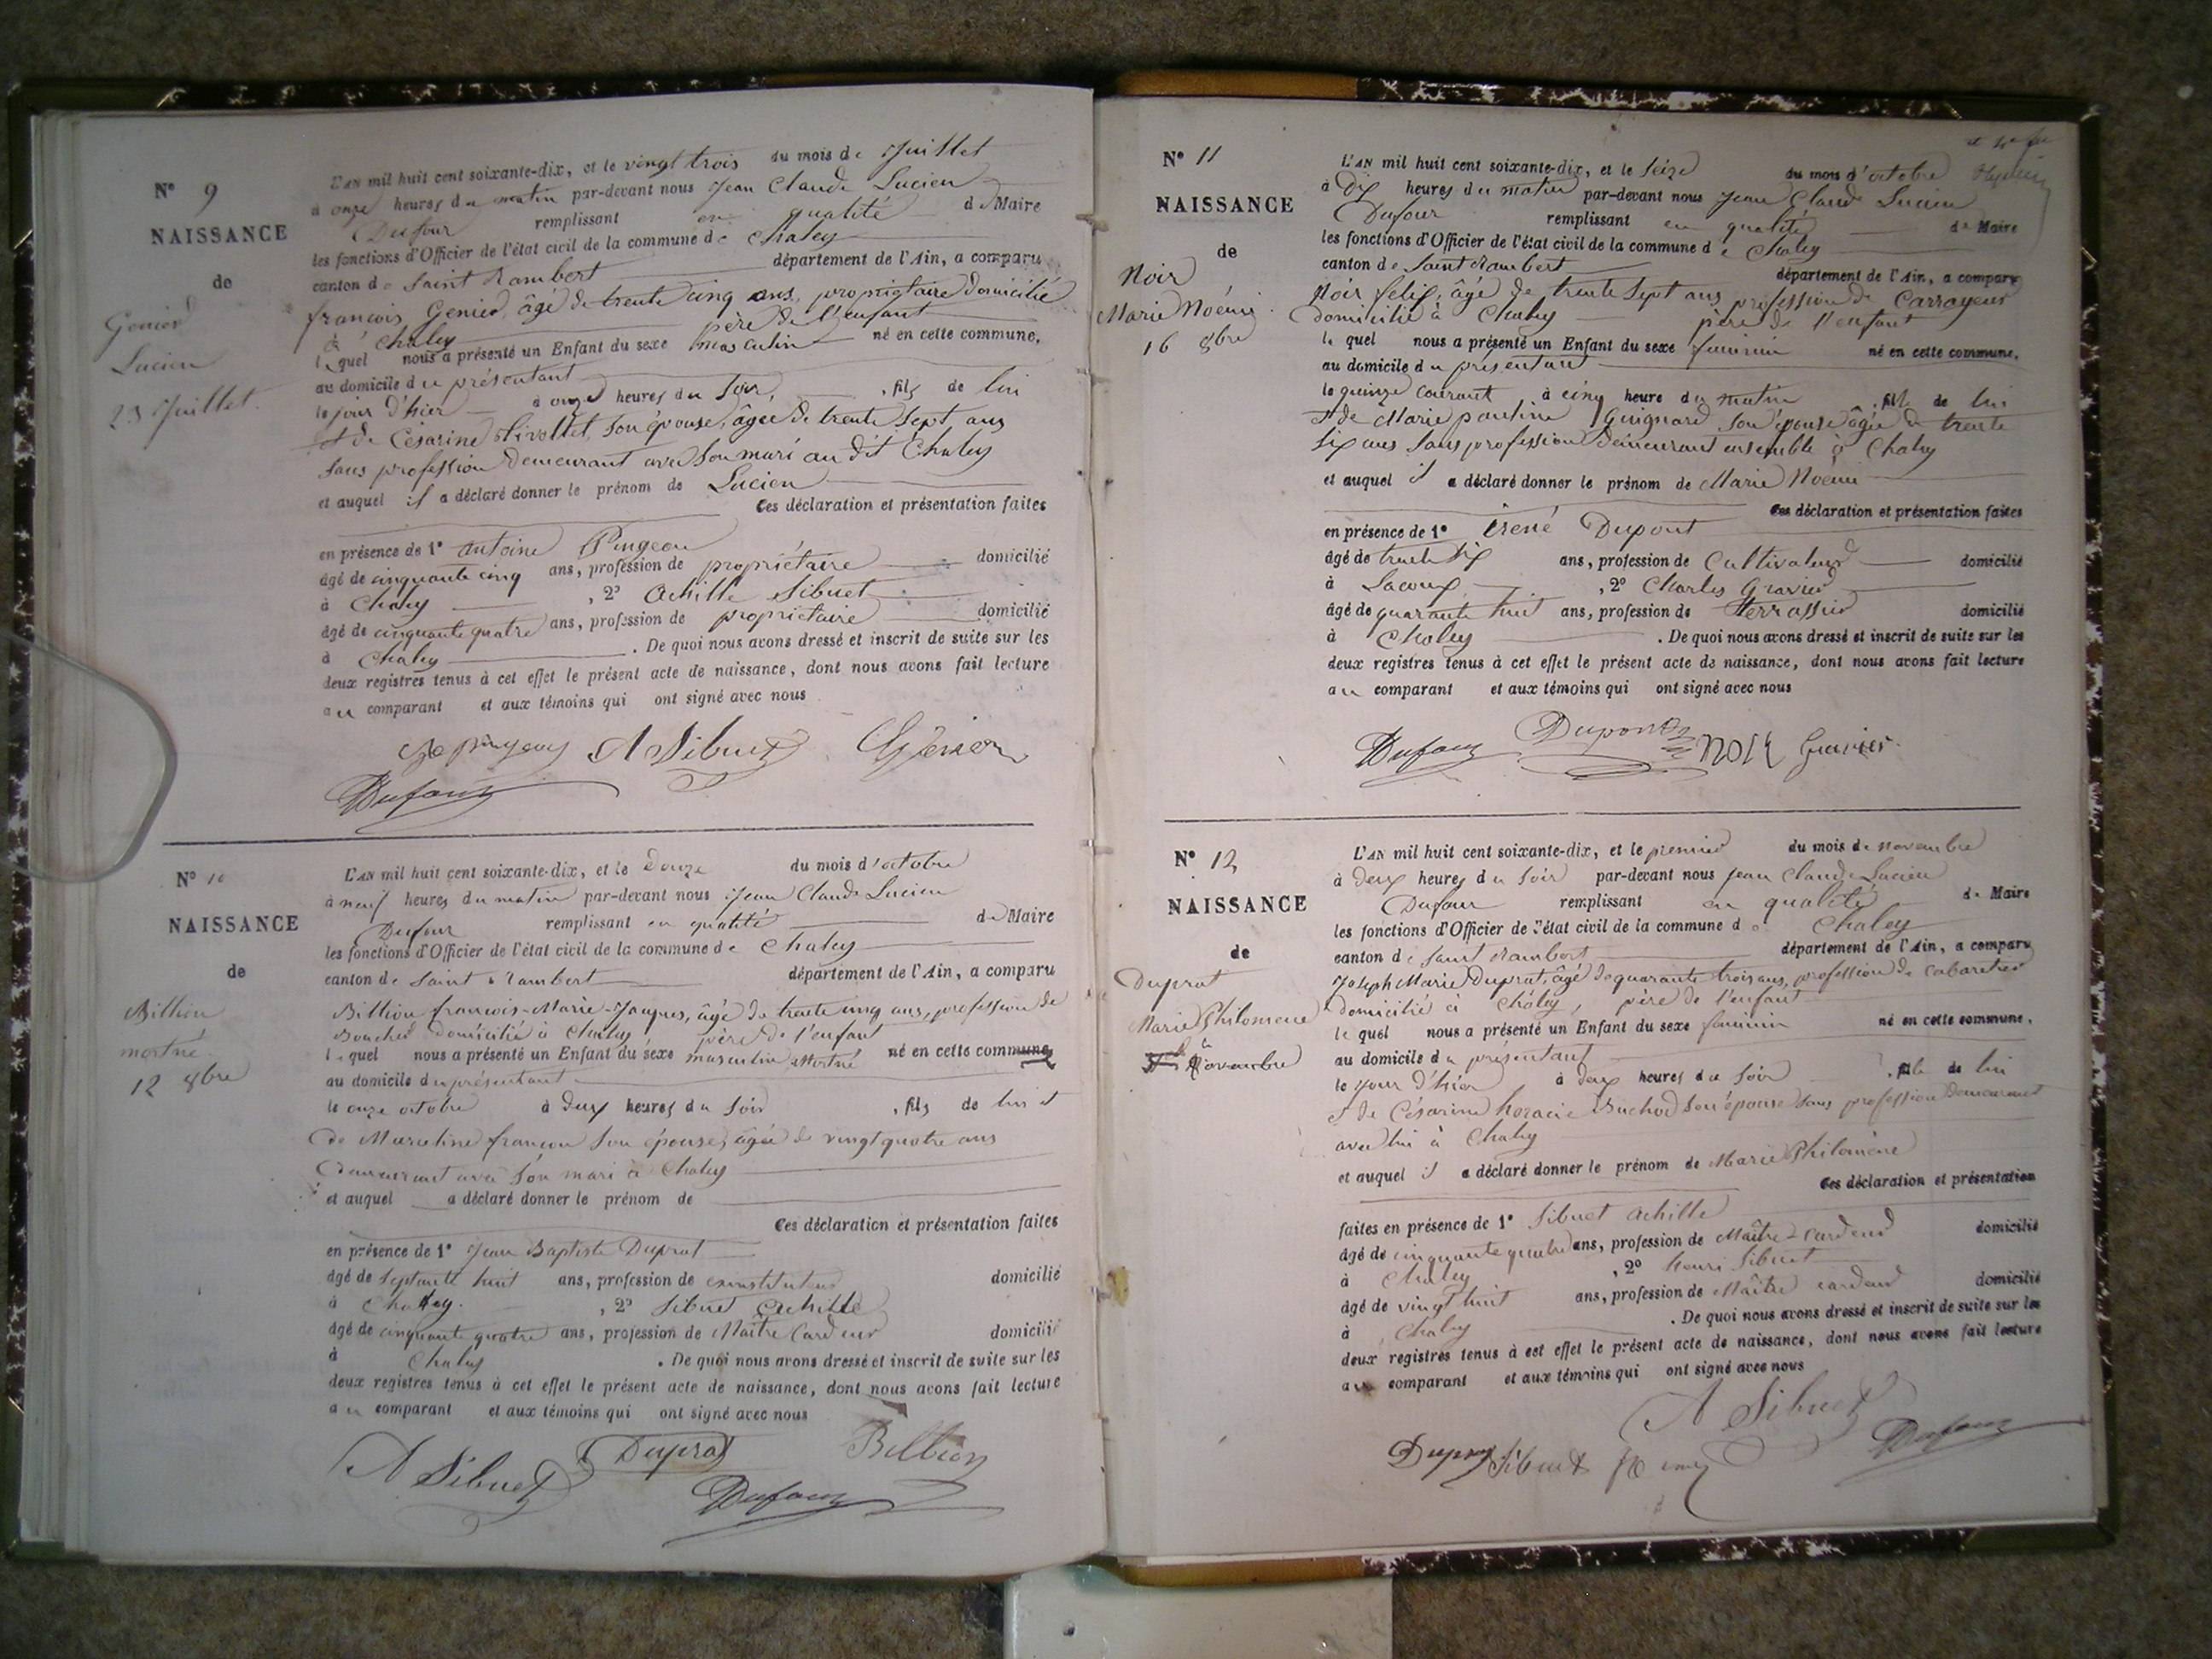 N° 9
NAISSANCE
de
Genier
Lucien
23 Juillet.
L'AN mil huit cent soixante-dix, et le vingt trois du mois de Juillet
à onze heures du matin par-devant nous Jean Claude Lucien
Dufour remplissant en qualité de Maire
les fonctions d'Officier de l'état civil de la commune de Chaley
canton de Saint Rambert département de l'Ain, a comparu
françois Genier, âgé de trente cinq ans, propriétaire domicilié
à Chaley père de l'enfant
lequel nous a présenté un Enfant du sexe masculin né en cette commune,
au domicile du présentant
le jour d'hier à onze heures du soir, fils de lui
et de Césarine Livollet, son épouse, âgée de trente sept ans
sans profession demeurant avec son mari au dit Chaley
et auquel il a déclaré donner le prénom de Lucien
Ces déclaration et présentation faites
en présence de 1° Antoine Pingeon
âgé de cinquante cinq ans, profession de propriétaire domicilié
à Chaley , 2° Achille Sibuet
âgé de cinquante quatre ans, profession de propriétaire domicilié
à Chaley . De quoi nous avons dressé et inscrit de suite sur les
deux registres tenus à cet effet le présent acte de naissance, dont nous avons fait lecture
au comparant et aux témoins qui ont signé avec nous
A Sibuet Génier
Dufour
N° 10
NAISSANCE
de
Billion
mortné
12 8bre
L'AN mil huit cent soixante-dix, et le Douze du mois d'octobre
à neuf heures du matin par-devant nous Jean Claude Lucien
Dufour remplissant en qualité de Maire
les fonctions d'Officier de l'état civil de la commune de Chaley
canton de Saint Rambert département de l'Ain, a comparu
Billion françois-Marie-Jacques, âgé de trente cinq ans, profession de
Boucher domicilié à Chaley père de l'enfant
lequel nous a présenté un Enfant du sexe masculin mortné né en cette commune
au domicile du présentant
le onze octobre à deux heures du soir , fils de lui et
de Marceline françon son épouse, âgée de vingt quatre ans
demeurant avec son mari à Chaley
et auquel a déclaré donner le prénom de
Ces déclaration et présentation faites
en présence de 1° Jean Baptiste Duprat
âgé de septante huit ans, profession de exinstituteur domicilié
à Chaley. , 2° Sibuet Achille
âgé de cinquante quatre ans, profession de Maître Cardeur domicilié
à Chaley . De quoi nous avons dressé et inscrit de suite sur les
deux registres tenus à cet effet le présent acte de naissance, dont nous avons fait lecture
au comparant et aux témoins qui ont signé avec nous
A Sibuet Duprat Billion
Dufour
N° 11
NAISSANCE
de
Noir
Marie Noémi
16 8bre
L'AN mil huit cent soixante-dix, et le seize du mois d'octobre
à dix heures du matin par-devant nous Jean Claude Lucien
Dufour remplissant en qualité de Maire
les fonctions d'Officier de l'état civil de la commune de Chaley
canton de Saint Rambert département de l'Ain, a comparu
Noir felix, âgé de trente sept ans profession de Carrayeur
domicilié à Chaley père de l'enfant
lequel nous a présenté un Enfant du sexe féminin né en cette commune,
au domicile du présentant
le quinze courant à cinq heure du matin fille de lui
et de Marie pauline Guignard son épouse âgée de trente
six ans sans profession demeurant ensemble à Chaley
et auquel il a déclaré donner le prénom de Marie Noémi
Ces déclaration et présentation faites
en présence de 1° irené Dupont
âgé de trente six ans, profession de Cultivateur domicilié
à Lacoux , 2° Charles Gravier
âgé de quarante huit ans, profession de terrassier domicilié
à Chaley . De quoi nous avons dressé et inscrit de suite sur les
deux registres tenus à cet effet le présent acte de naissance, dont nous avons fait lecture
au comparant et aux témoins qui ont signé avec nous
Dufour Dupont NOIR Gravier
N° 12
NAISSANCE
de
Duprat
Marie Philomene
Novembre
L'AN mil huit cent soixante-dix, et le premier du mois de novembre
à deux heures du soir par-devant nous jean Claude Lucien
Dufour remplissant en qualité de Maire
les fonctions d'Officier de l'état civil de la commune de Chaley
canton de saint Rambert département de l'Ain, a comparu
Joseph Marie Duprat, âgé de quarante trois ans, profession de cabaretier
domicilié à Chaley, père de l'enfant
lequel nous a présenté un Enfant du sexe féminin né en cette commune,
au domicile du présentant
le jour d'hier à deux heures du soir , fille de lui
et de Césarine horacie Buchod son épouse sans profession demeurant
avec lui à Chaley
et auquel il a déclaré donner le prénom de Marie Philomène
Ces déclaration et présentation
faites en présence de 1° Sibuet Achille
âgé de cinquante quatre ans, profession de Maître Cardeur domicilié
à Chaley , 2° henri Sibuet
âgé de vingt huit ans, profession de Maître cardeur domicilié
à Chaley . De quoi nous avons dressé et inscrit de suite sur les
deux registres tenus à cet effet le présent acte de naissance, dont nous avons fait lecture
au comparant et aux témoins qui ont signé avec nous
A Sibuet
Duprat Sibuet Dufour